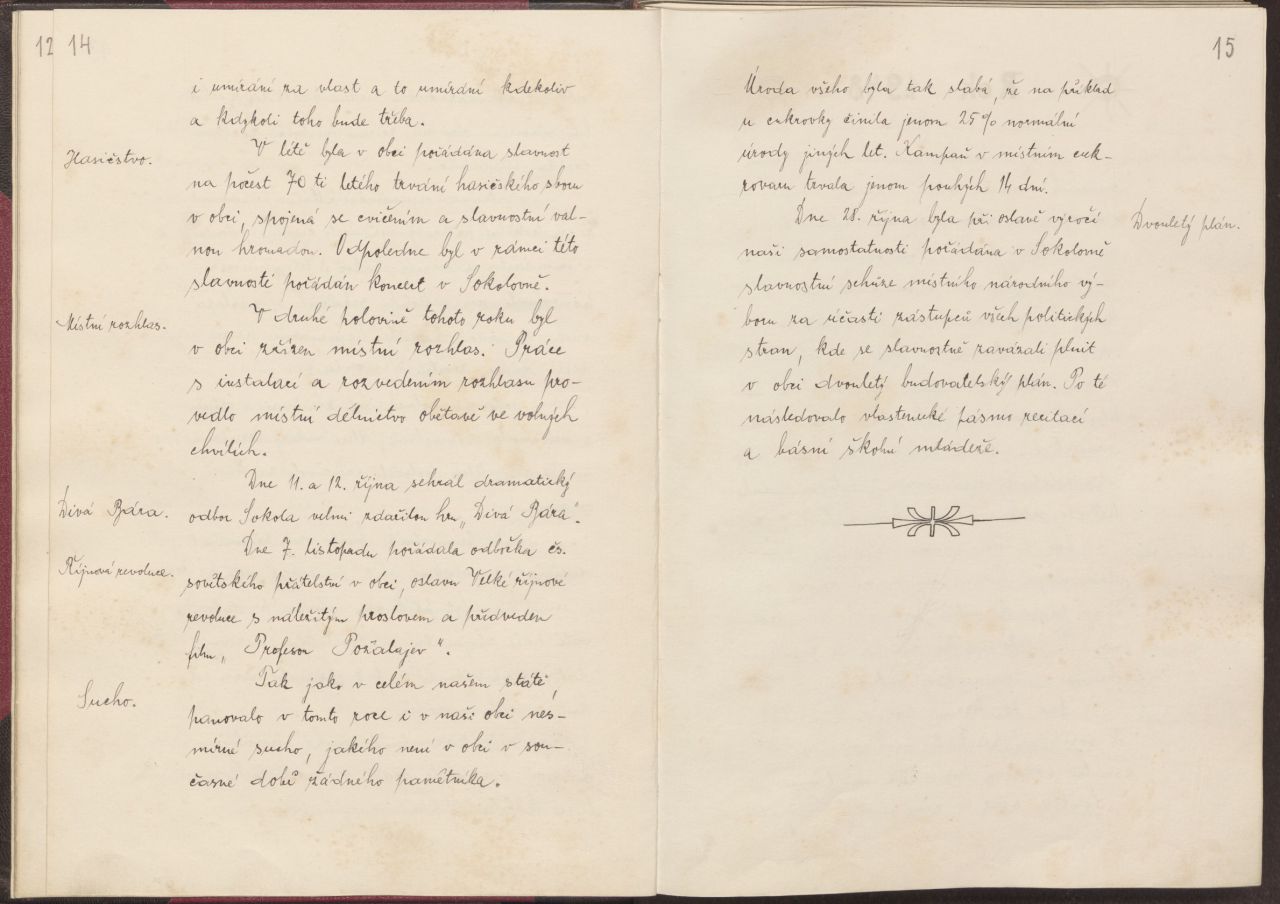 12 14
i umírání za vlast a to umírání kdekoliv
a kdykoli toho bude třeba.
Hasičstvo.
V létě byla v obci pořádána slavnost
na počest 70 ti letého trvání hasičského sboru
v obci, spojená se cvičením a slavnostní val-
nou hromadou. Odpoledne byl v rámci této
slavnosti pořádán koncert v Sokolovně.
Místní rozhlas.
V druhé polovině tohoto roku byl
v obci zřízen místní rozhlas. Práce
s instalací a rozvedením rozhlasu pro-
vedlo místní dělnictvo obětavě ve volných
chvílích.
Dne 11. a 12. října sehrál dramatický
Divá Bára.
odbor Sokola velmi zdařilou hru „Divá Bára".
Dne 7. listopadu pořádala odbočka čs.
Říjnová revoluce.
sovětského přátelství v obci, oslavu Velké říjnové
revoluce s náležitým proslovem a předveden
film „Profesor Požalajev".
Sucho.
Tak jako v celém našem státě,
panovalo v tomto roce i v naši obci nes-
mírné sucho, jakého není v obci v sou-
časné době žádného pamětníka.
15
Úroda všeho byla tak slabá, že na příklad
u cukrovky činila jenom 25% normální
úrody jiných let. Kampaň v místním cuk-
rovaru trvala jenom pouhých 14 dní.
Dvouletý plán.
Dne 28. října byla při oslavě výročí
naši samostatnosti pořádána v Sokolovně
slavnostní schůze místního národního vý-
boru za účasti zástupců všech politických
stran, kde se slavnostně zavázali plnit
v obci dvouletý budovatelský plán. Po té
následovalo vlastenecké pásmo recitací
a básní školní mládeže.